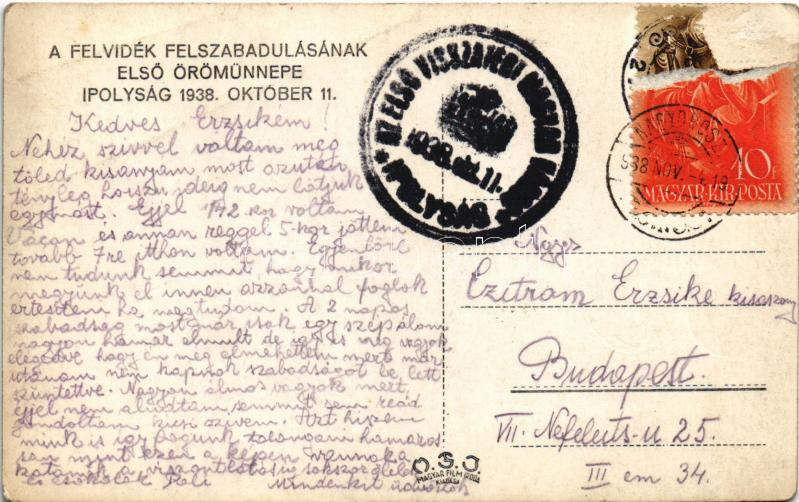 A FELVIDÉK FELSZABADULÁSÁNAK
ELSŐ ÖRÖMÜNNEPE
IPOLYSÁG 1938. OKTÓBER 11.
AZ ELSŐ VISSZATÉRT MAGYAR VÁROS
1938. okt. 11.
* IPOLYSÁG
NAGYOROSZI
938 NOV.
10f
MAGYAR·KIR·POSTA
Kedves Erzsikém!
Nehéz szívvelváltam meg
tőled kisanyám most azután
tényleg hosszu ideig nem látjuk
egymást. Éjjel 1/42-kor voltam
Vácon és annan reggel 5-kor jöttem
tovább 7re itthon voltam. Egyenlőre
nem tudunk semmit hogy mikor
megyünk el innen azzonnal foglok
értesíteni ha megtudom. A 2 napos
szabadság most már csak egy szép álom
nagyon hamar elmult de igy is meg vagyok
elégedve hogy én még elmehettem mert már
utánam nem kapnak szabadságot be lett
szüntetve. Nagyon álmos vagyok mert
éjjel nem aludtam semmit sem reád
gondoltam kicsi szivem. Azt hiszem
mink is igy fogunk hamaro-
san mint ezen a képen vannak a
katonák a viszontlátásig sokszor ölel
és csókolák Pali Mindenkit üdvözlök
Nagys
Czitrom Erzsike kisasszony
Budapest.
VII. Nefelejts-u 25.
III em 34.
O.S.J.
MAGYAR FILM IRODA
KIADÁSA